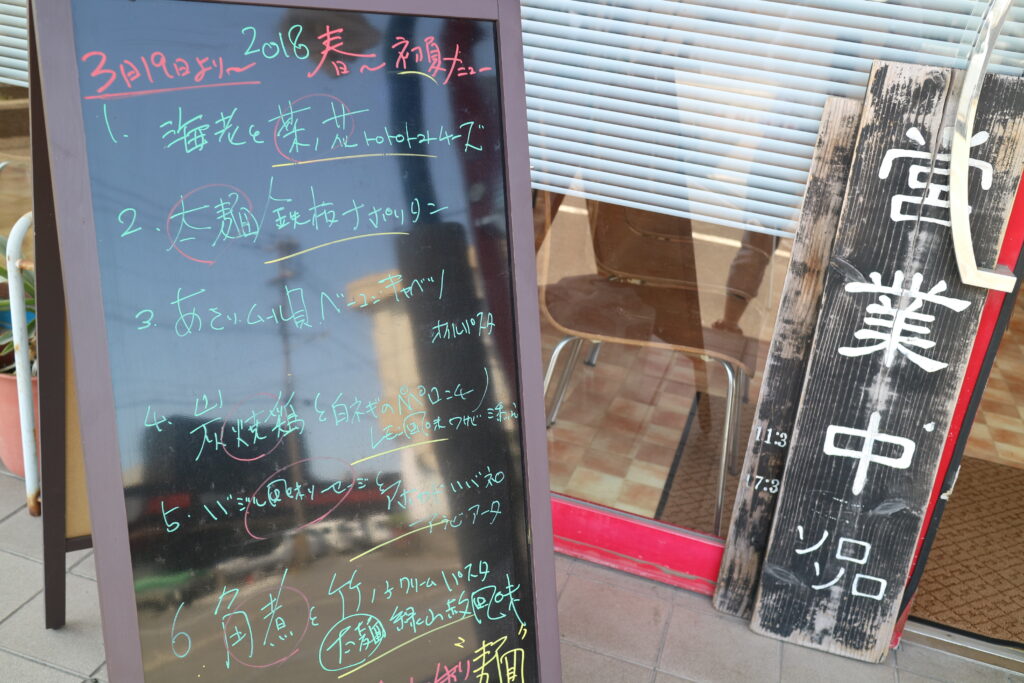 2018 春～初夏メニュー
3月19日より～
1. 海老と菜ノ花トロトロトマトチーズ
2. 太麺鉄板ナポリタン
3. あさり、ムール貝、ベーコン、キャベツ
オイルパスタ
4. 炭焼鶏と白ネギのペペロンチーノ
レモン風味ワサビ
5. バジル風味ソーセージと
アラビアータ
6 角煮と竹ノ子クリームパスタ
太麺 風味
麺
営業中
ソロソロ
11:3
17:3